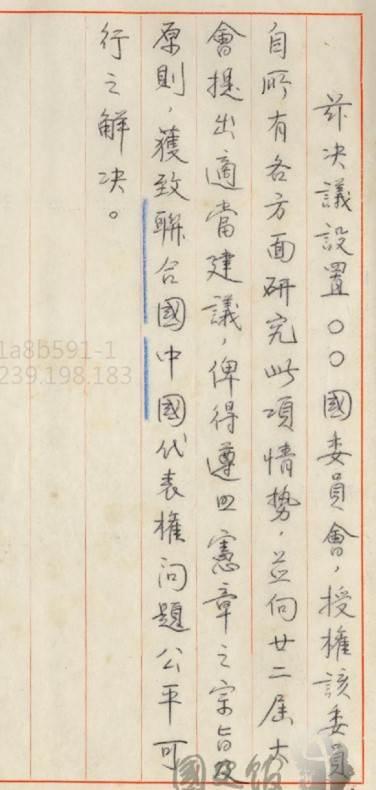 茲決議設置○○國委員會，授權該委員
自所有各方面研究此項情勢，並向廿二屆大
會提出適當建議，俾得遵照憲章之宗旨及
原則，獲致聯合國中國代表權問題公平可
行之解決。
1a8b591-1
239.198.183